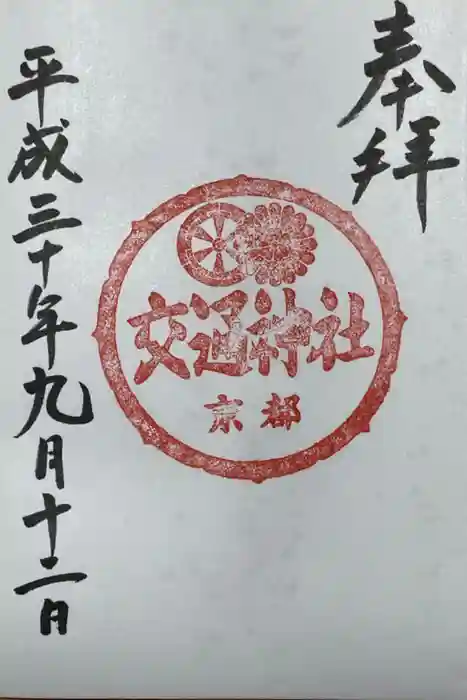 奉拝
交通神社
京都
平成三十年九月十二日